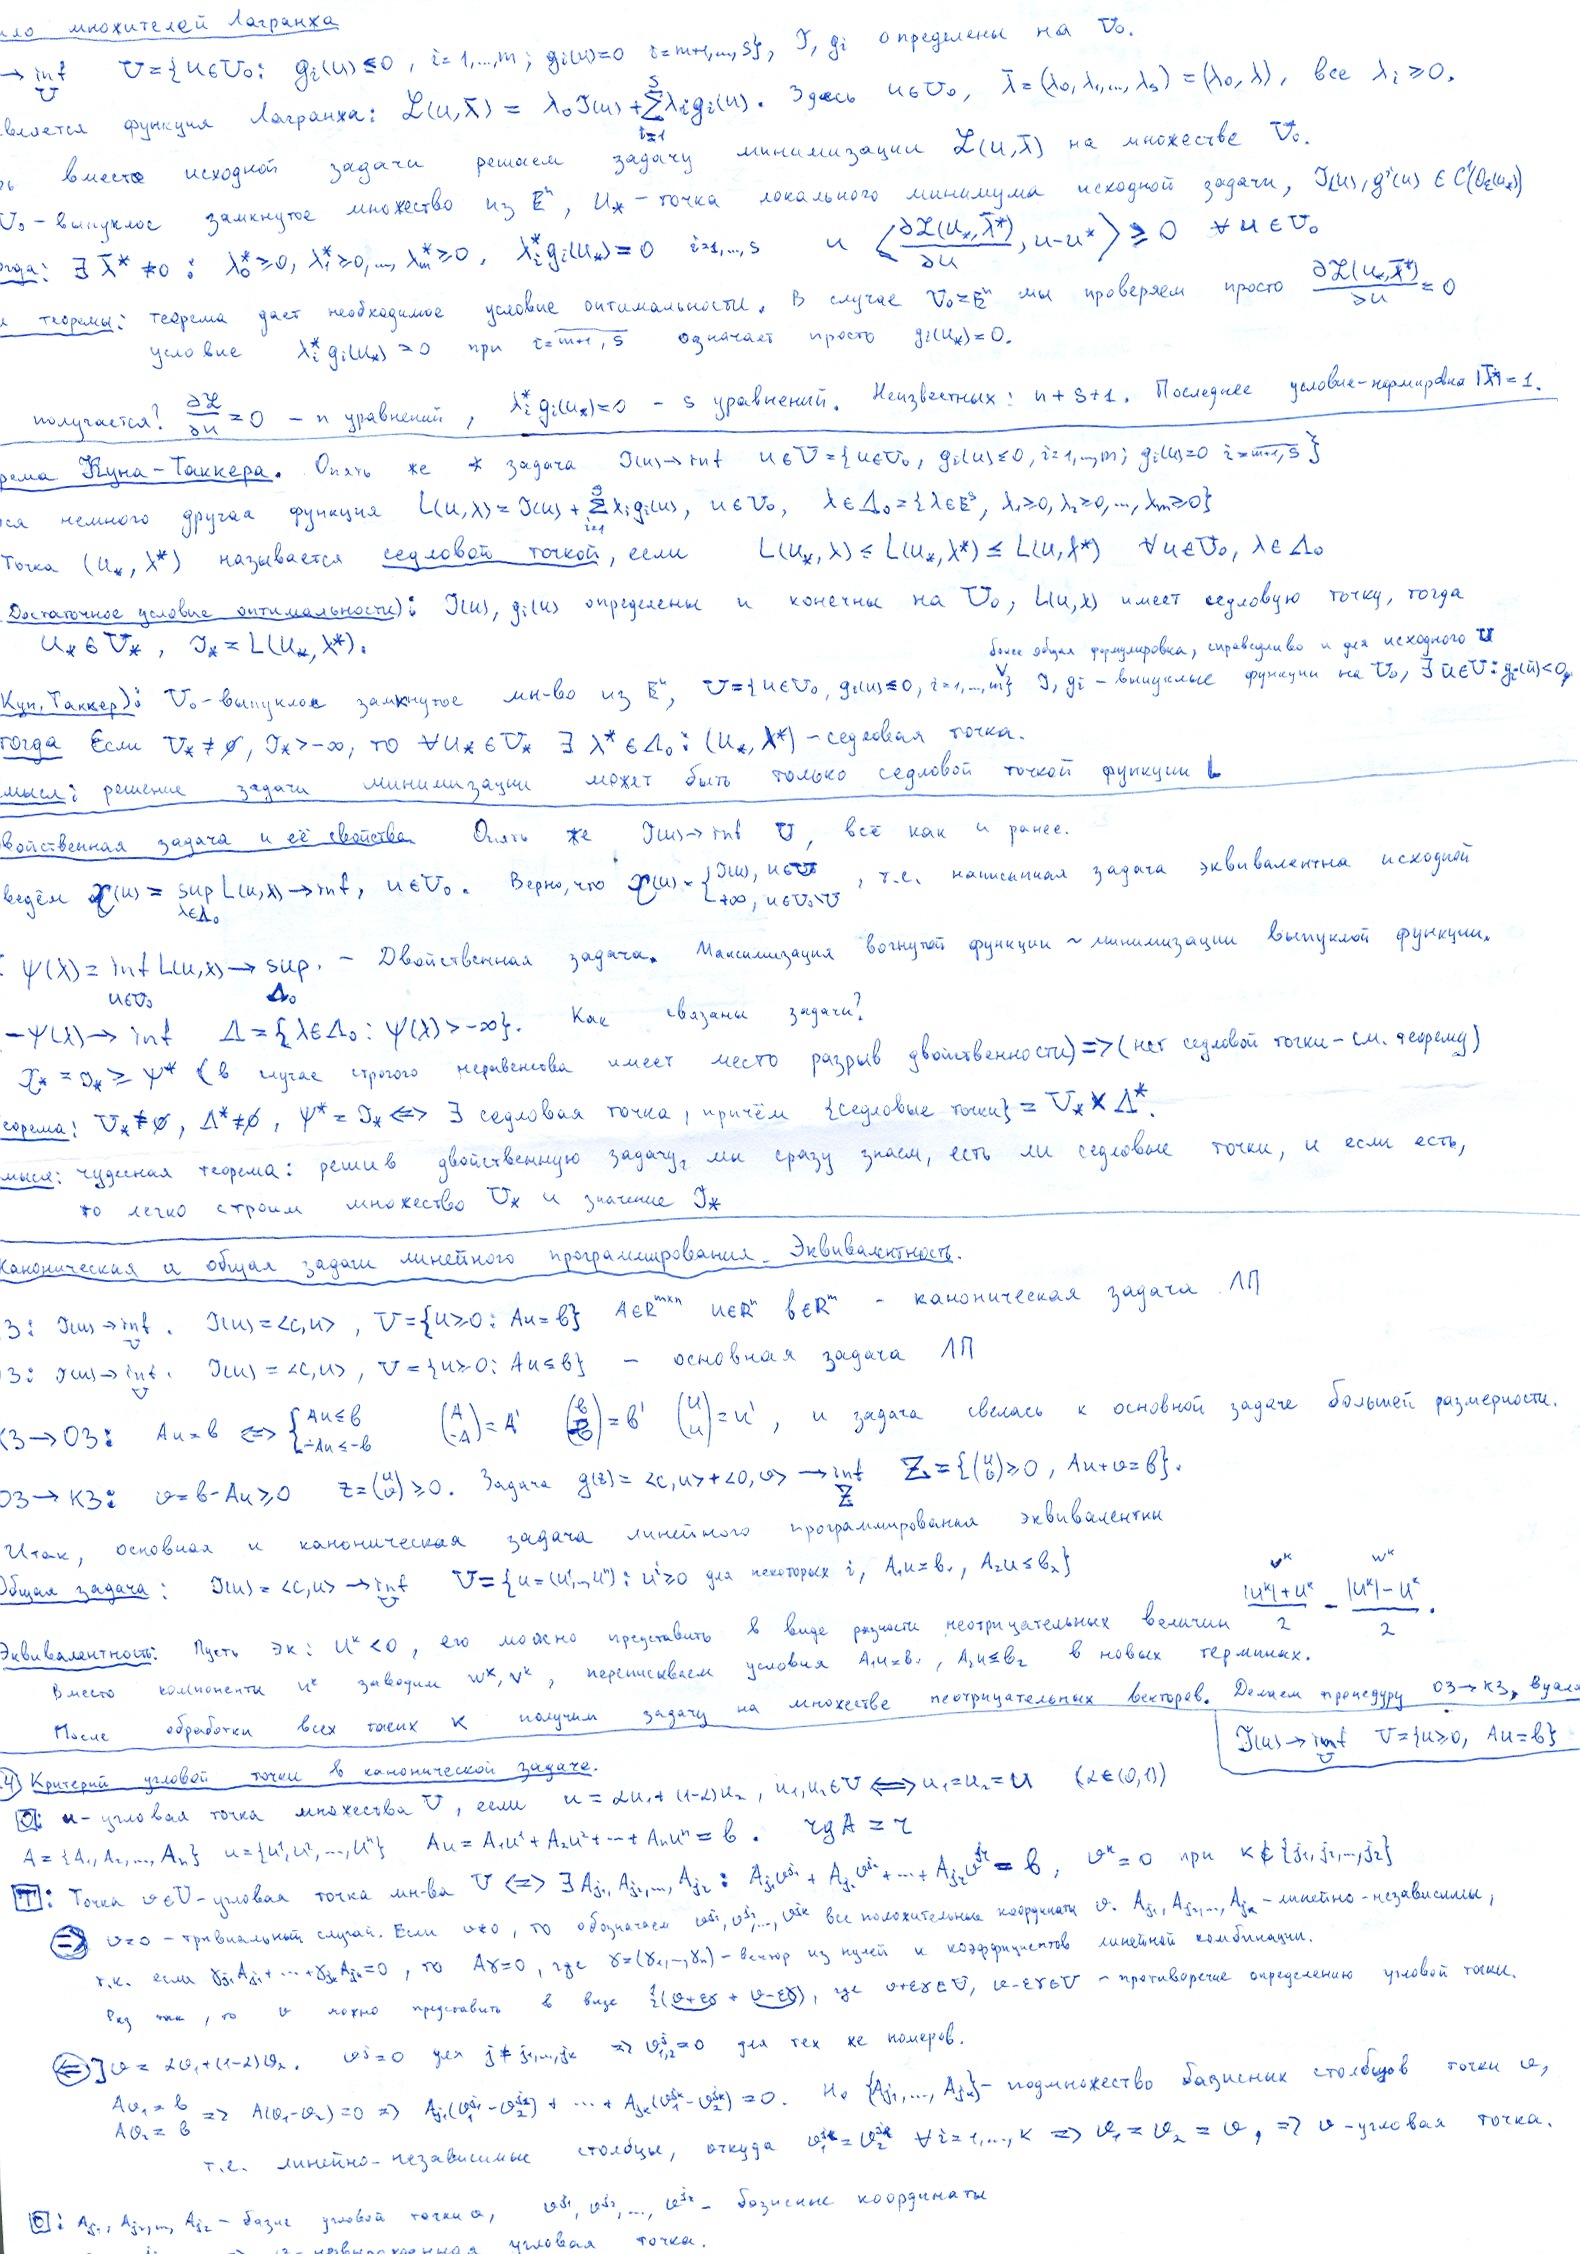 ило множителей Лагранжа
→ inf U U={u∈U₀: gᵢ(u)≤0, i=1,...,m; gᵢ(u)=0 i=m+1,...,s}, J, gᵢ определены на U₀.
вляется функция Лагранжа: ℒ(u,λ̄) = λ₀J(u)+∑ᵢ₌₁ˢλᵢgᵢ(u). Здесь u∈U₀, λ̄=(λ₀,λ₁,...,λₛ)=(λ₀,λ), все λᵢ≥0.
рь вместо исходной задачи решаем задачу минимизации ℒ(u,λ̄) на множестве U₀.
U₀-выпуклое замкнутое множество из Eⁿ, u*-точка локального минимума исходной задачи, J(u), gⁱ(u)∈C¹(O_ε(u*))
огда: ∃ λ̄*≠0: λ₀*≥0, λ₁*≥0,..., λₘ*≥0, λᵢ*gᵢ(u*)=0 i=1,...,s и ⟨∂ℒ(u*,λ̄*)/∂u, u-u*⟩≥0 ∀u∈U₀
л теоремы: теорема дает необходимое условие оптимальности. В случае U₀=Eⁿ мы проверяем просто ∂ℒ(u*,λ̄*)/∂u=0
условие λᵢ*gᵢ(u*)=0 при i=m+1,s означает просто gᵢ(u*)=0.
получается? ∂ℒ/∂u=0 – n уравнений, λᵢ*gᵢ(u*)=0 – s уравнений. Неизвестных: n+s+1. Последнее условие-нормировка |λ̄*|=1.
рема Куна-Таккера. Опять же задача J(u)→inf u∈U={u∈U₀, gᵢ(u)≤0, i=1,...,m; gᵢ(u)=0 i=m+1,s}
тся немного другая функция L(u,λ)=J(u)+∑ᵢ₌₁ˢλᵢgᵢ(u), u∈U₀, λ∈Λ₀={λ∈Eˢ, λ₁≥0, λ₂≥0,..., λₘ≥0}
Точка (u*, λ*) называется седловой точкой, если L(u*,λ)≤L(u*,λ*)≤L(u,λ*) ∀u∈U₀, λ∈Λ₀
Достаточное условие оптимальности): J(u), gᵢ(u) определены и конечны на U₀, L(u,λ) имеет седловую точку, тогда
u*∈U*, J*=L(u*,λ*).
более общая формулировка, справедливо и для исходного U
Кун,Таккер): U₀-выпуклое замкнутое мн-во из Eⁿ, U={u∈U₀, gᵢ(u)≤0, i=1,...,m} J, gᵢ – выпуклые функции на U₀, ∃ū∈U: gᵢ(ū)<0,
тогда Если U*≠∅, J*>-∞, то ∀u*∈U* ∃ λ*∈Λ₀: (u*,λ*) – седловая точка.
мысл: решение задачи минимизации может быть только седловой точкой функции L
войственная задача и её свойства Опять же J(u)→inf U, всё как и ранее.
ведём χ(u) = sup λ∈Λ₀ L(u,λ)→inf, u∈U₀. Верно, что χ(u)={J(u), u∈U; +∞, u∈U₀\U, т.е. написанная задача эквивалентна исходной
: ψ(λ)= inf u∈U₀ L(u,λ)→ sup Λ₀. – Двойственная задача. Максимизация вогнутой функции ~ минимизации выпуклой функции.
-ψ(λ)→ inf Λ={λ∈Λ₀: ψ(λ)>-∞}. Как связаны задачи?
χ* = J* ≥ ψ* (в случае строгого неравенства имеет место разрыв двойственности)=>(нет седловой точки-см. теорему)
еорема: U*≠∅, Λ*≠∅, ψ*=J* <=> ∃ седловая точка, причём {седловые точки}=U*×Λ*.
мысл: чудесная теорема: решив двойственную задачу, мы сразу знаем, есть ли седловые точки, и если есть,
то легко строим множество U* и значение J*
Каноническая и общая задачи линейного программирования. Эквивалентность.
З: J(u)→inf U. J(u)=<c,u>, U={u≥0: Au=b} A∈Rᵐˣⁿ u∈Rⁿ b∈Rᵐ – каноническая задача ЛП
ОЗ: J(u)→inf U. J(u)=<c,u>, U={u≥0: Au≤b} – основная задача ЛП
КЗ→ОЗ: Au=b <=> {Au≤b; -Au≤-b (A; -A)=A' (b; -b)=b' (u; u)=u', и задача свелась к основной задаче большей размерности.
ОЗ→КЗ: v=b-Au≥0 z=(u; v)≥0. Задача g(z)=<c,u>+<0,v> →inf Z Z={(u; v)≥0, Au+v=b}.
Итак, основная и каноническая задача линейного программирования эквивалентны
Общая задача: J(u)=<c,u>→inf U U={u=(u¹,...,uⁿ): uⁱ≥0 для некоторых i, A₁u=b₁, A₂u≤b₂}
Эквивалентность: Пусть ∃k: uᵏ<0, его можно представить в виде разности неотрицательных величин vᵏ (|uᵏ|+uᵏ)/2 - wᵏ (|uᵏ|-uᵏ)/2.
Вместо компоненты uᵏ заводим wᵏ, vᵏ, переписываем условия A₁u=b₁, A₂u≤b₂ в новых терминах.
После обработки всех таких k получим задачу на множестве неотрицательных векторов. Делаем процедуру ОЗ→КЗ, вуаля
J(u)→inf U U={u≥0, Au=b}
4) Критерий угловой точки в канонической задаче.
О: u-угловая точка множества U, если u=αu₁+(1-α)u₂, u₁,u₂∈U <=> u₁=u₂=u (α∈(0,1))
A={A₁,A₂,...,Aₙ} u={u¹,u²,...,uⁿ} Au=A₁u¹+A₂u²+...+Aₙuⁿ=b. rgA=r
Т: Точка v∈U-угловая точка мн-ва U <=> ∃Aⱼ₁,Aⱼ₂,...,Aⱼᵣ: Aⱼ₁vʲ¹+Aⱼ₂vʲ²+...+Aⱼᵣvʲʳ=b, vᵏ=0 при k∉{j₁,j₂,...,jᵣ}
=> v=0 – тривиальный случай. Если v≠0, то обозначаем vʲ¹,vʲ²,...,vʲᵏ все положительные координаты v. Aⱼ₁,Aⱼ₂,...,Aⱼₖ-линейно-независимы,
т.к. если γⱼ₁Aⱼ₁+...+γⱼₖAⱼₖ=0, то Aγ=0, где γ=(γ₁,...,γₙ)-вектор из нулей и коэффициентов линейной комбинации.
Раз так, то v можно представить в виде ½(v+εγ + v-εγ), где v+εγ∈U, v-εγ∈U – противоречие определению угловой точки.
<= ]v=αv₁+(1-α)v₂. vʲ=0 для j≠j₁,...,jₖ => vʲ₁,₂=0 для тех же номеров.
Av₁=b
Av₂=b => A(v₁-v₂)=0 => Aⱼ₁(v₁ʲ¹-v₂ʲ¹)+...+Aⱼₖ(v₁ʲᵏ-v₂ʲᵏ)=0. Но {Aⱼ₁,...,Aⱼₖ}-подмножество базисных столбцов точки v,
т.е. линейно-независимые столбцы, откуда v₁ʲᵏ=v₂ʲᵏ ∀i=1,...,k => v₁=v₂=v, => v-угловая точка.
О: Aⱼ₁,Aⱼ₂,...,Aⱼᵣ-базис угловой точки v, vʲ¹,vʲ²,...,vʲʳ- базисные координаты
невырожденная угловая точка.